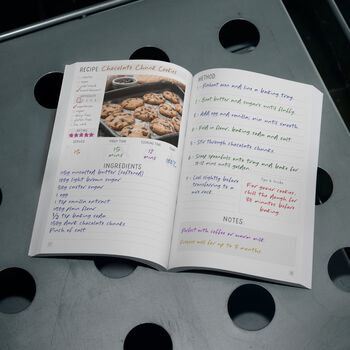 RECIPE: Chocolate Chunk Cookies
RATING
SERVES
PREP TIME
COOKING TIME
15
15 mins
12 mins
INGREDIENTS
150g unsalted butter (softened)
100g light brown sugar
80g caster sugar
1 egg
1 tsp vanilla extract
180g plain flour
1/2 tsp baking soda
150g dark chocolate chunks
Pinch of salt
METHOD
1 - Preheat oven and line a baking tray
2 - Beat butter and sugars until fluffy
3 - Add egg and vanilla, mix until smooth
4 - Fold in flour, baking soda and salt
5 - Stir through chocolate chunks
6 - Drop spoonfuls onto tray and bake for
minutes until golden
7 - Cool slightly before
transferring to a
wire rack
Tips & Tricks
For gooier cookies,
chill the dough for
30 minutes before
baking
NOTES
Perfect with coffee or warm milk
Freezes well for up to 3 months